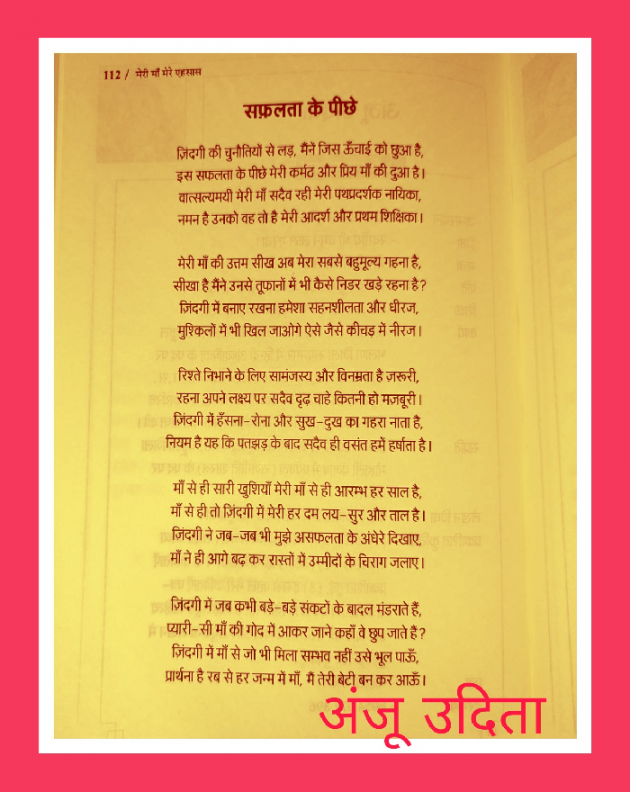 112 / मेरी माँ मेरे एहसास
सफ़लता के पीछे
ज़िंदगी की चुनौतियों से लड़, मैंनें जिस ऊँचाई को छुआ है,
इस सफलता के पीछे मेरी कर्मठ और प्रिय माँ की दुआ है।
वात्सल्यमयी मेरी माँ सदैव रही मेरी पथप्रदर्शक नायिका,
नमन है उनको वह तो है मेरी आदर्श और प्रथम शिक्षिका।
मेरी माँ की उत्तम सीख अब मेरा सबसे बहुमूल्य गहना है,
सीखा है मैंने उनसे तूफानों में भी कैसे निडर खड़े रहना है?
ज़िंदगी में बनाए रखना हमेशा सहनशीलता और धीरज,
मुश्किलों में भी खिल जाओगे ऐसे जैसे कीचड़ में नीरज।
रिश्ते निभाने के लिए सामंजस्य और विनम्रता है ज़रूरी,
रहना अपने लक्ष्य पर सदैव दृढ़ चाहे कितनी हो मज़बूरी।
ज़िंदगी में हँसना-रोना और सुख-दुख का गहरा नाता है,
नियम है यह कि पतझड़ के बाद सदैव ही वसंत हमें हर्षाता है।
माँ से ही सारी खुशियाँ मेरी माँ से ही आरम्भ हर साल है,
माँ से ही तो ज़िंदगी में मेरी हर दम लय-सुर और ताल है।
ज़िंदगी ने जब-जब भी मुझे असफलता के अंधेरे दिखाए,
माँ ने ही आगे बढ़ कर रास्तों में उम्मीदों के चिराग जलाए।
ज़िंदगी में जब कभी बड़े-बड़े संकटों के बादल मंडराते हैं,
प्यारी-सी माँ की गोद में आकर जाने कहाँ वे छुप जाते हैं?
ज़िंदगी में माँ से जो भी मिला सम्भव नहीं उसे भूल पाऊँ,
प्रार्थना है रब से हर जन्म में माँ, मैं तेरी बेटी बन कर आऊँ।
अंजू उदिता